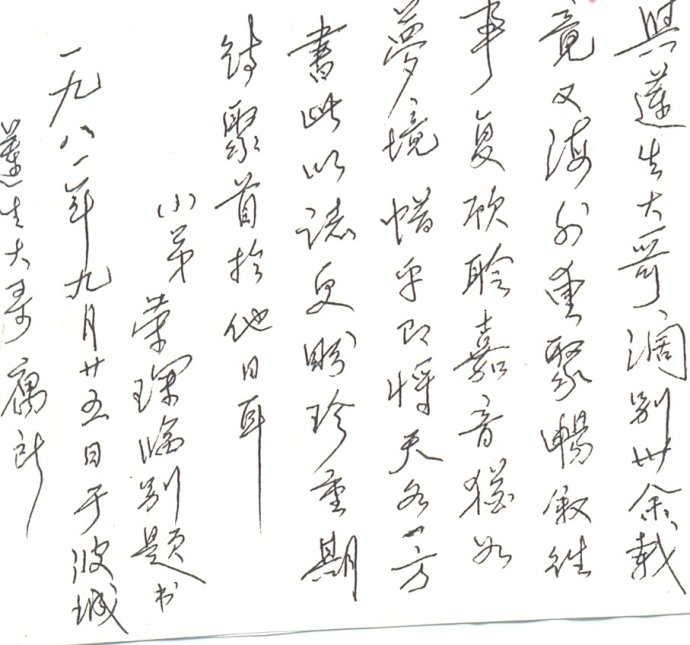 與蓮生大哥闊别卅余载
竟又海外重聚暢敘往
事复欣聆嘉音猶如
夢境惜乎即将天各一方
書此以誌更盼珍重期
待聚首於他日耳
小弟榮琛臨别题书
一九八一年九月廿五日于波城
蓮生大哥